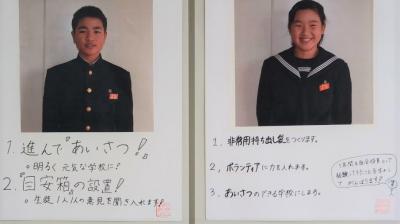 1. 進んで『あいさつ!』
◦ 明るく 元気な学校に!
2.『目安箱』の設置!
◦ 生徒1人1人の意見を聞き入れます!
1. 非常用持ち出し袋をつくります。
2. ボランティアに力を入れます。
3. あいさつのできる学校にします。
がんばります!